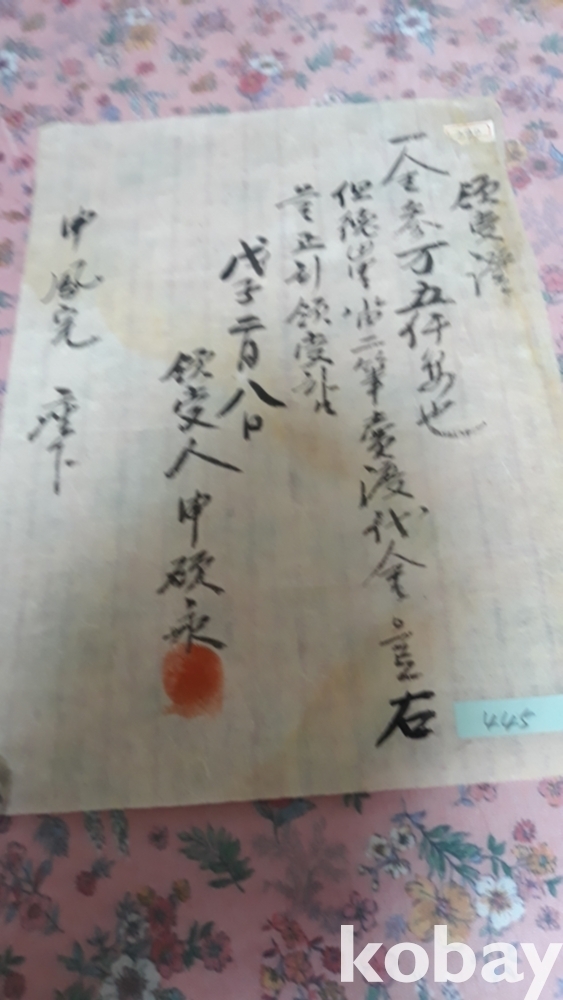 領受證
一金參万五仟원也
但 二筆賣渡代金 으로 右
를 正히 領受함
戊子 二月 八日
領受人 申硯永
申鳳完 座下
445
kobay